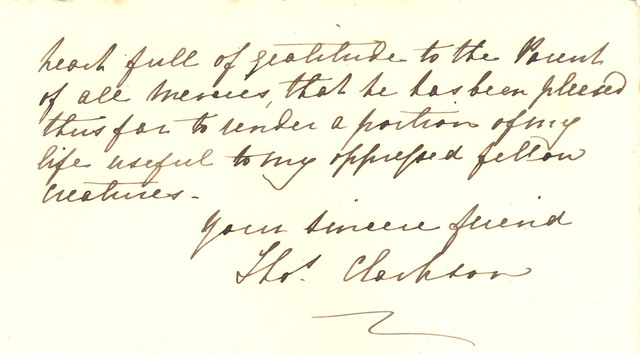 heart full of gratitude to the Parent
of all Mercies, that he has been pleased
thus far to render a portion of my
life useful to my oppressed fellow
creatures -
Your sincere friend
Thos. Clarkson